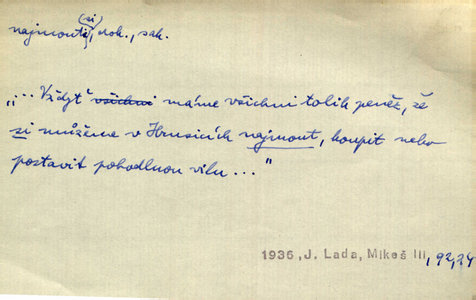 najmouti (si), dok., sak.
„... Vždyť všichni máme všichni tolik peněz, že
si můžeme v Hrusicích najmout, koupit nebo
postavit pohodlnou vilu ..."
1936, J. Lada, Mikeš III, 92,24